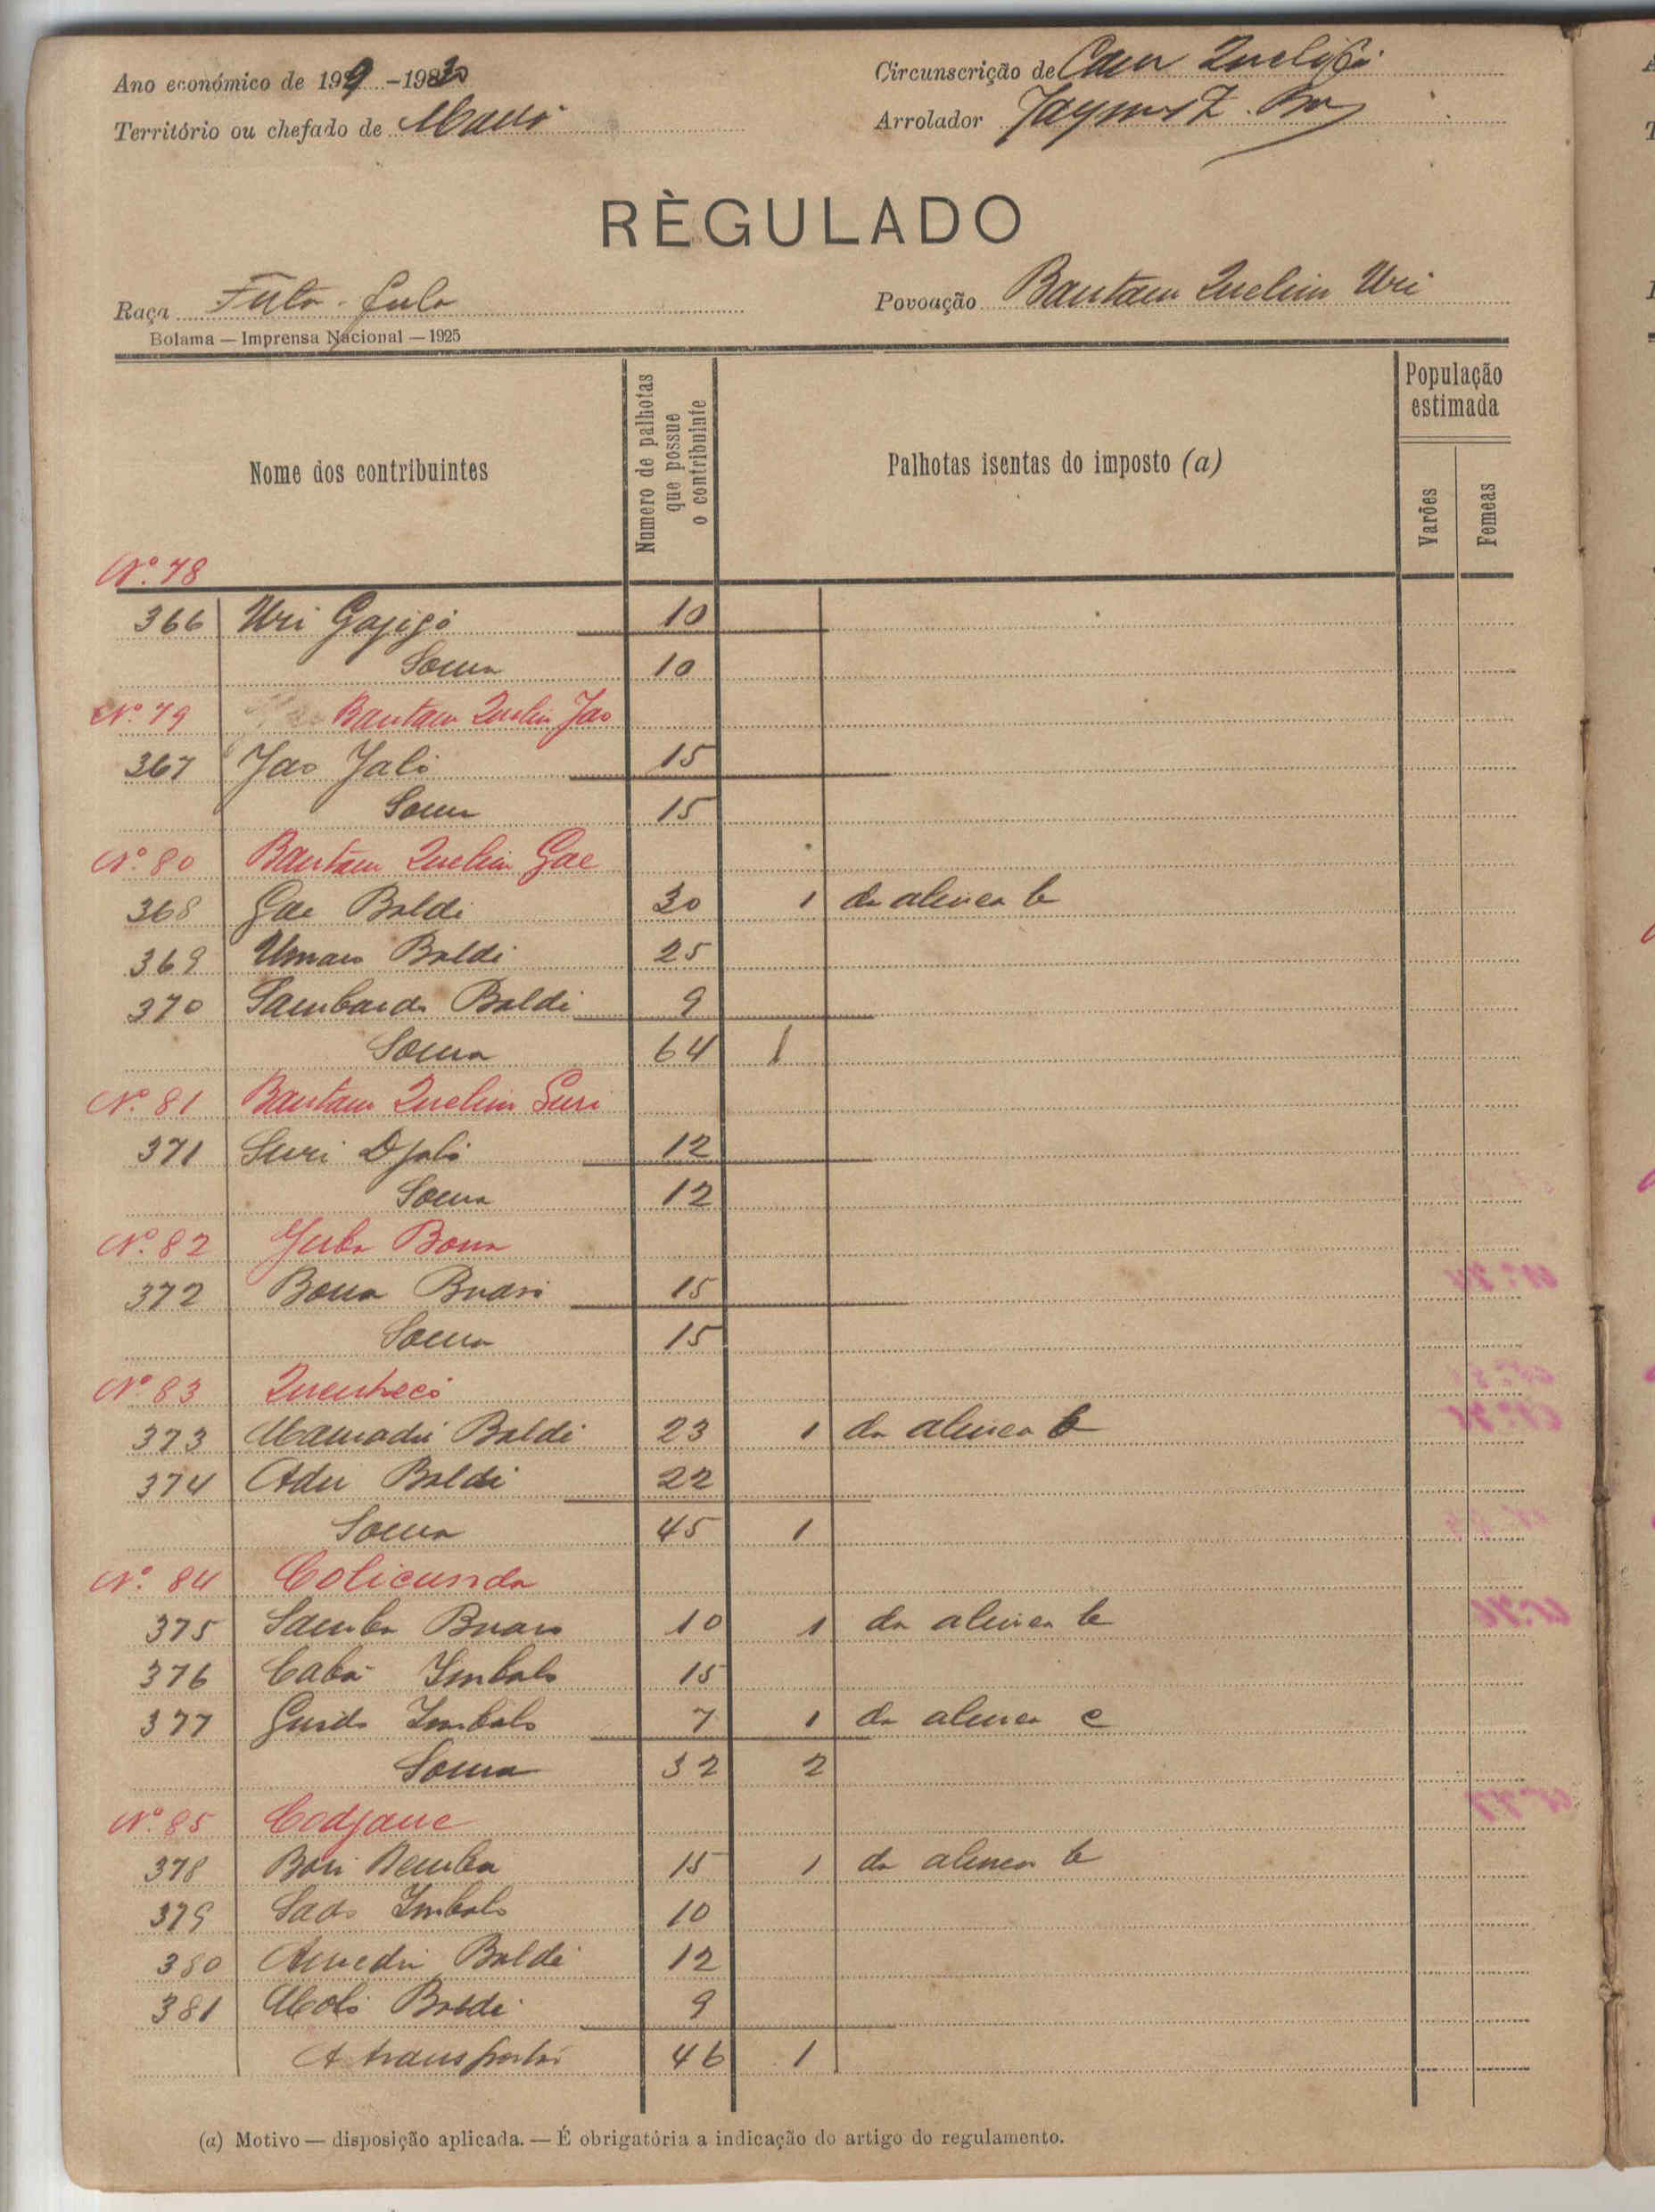 Ano económico de 1929 - 1930
Circunscrição de
Território ou chefado de
Arrolador
RÈGULADO
Raça Futa-fula
Povoação Bantam Quelim Uri
Bolama — Imprensa Nacional — 1925
Nome dos contribuintes
Numero de palhotas que possue o contribuinte
Palhotas isentas do imposto (a)
População estimada
Varões
Femeas
Nº. 78
366 Uri 10
Soma 10
Nº. 79 Bantam Quelim Jao
367 Jao Jaló 15
Soma 15
Nº. 80 Bantam Quelim Gae
368 Gae Baldé 30 1 da alinea b
369 Umaro Baldé 25
370 Baldé 9
Soma 64 1
Nº. 81 Bantam Quelim Suri
371 Suri Djaló 12
Soma 12
Nº. 82 Bona
372 Bona 15
Soma 15
Nº 83
373 Mamadú Baldé 23 1 da alinea b
374 Adu Baldé 22
Soma 45 1
Nº. 84 Colicunda
375 Samba 10 1 da alinea b
376 Cabá Imbalo 15
377 Guido Imbaló 7 1 da alinea c
Soma 32 2
Nº. 85 Codjane
378 Bori Demba 15 1 da alinea b
379 Sado Imbalo 10
380 Amedú Baldé 12
381 Moló Baldé 9
A transportar 46 1
(a) Motivo — disposição aplicada. — É obrigatória a indicação do artigo do regulamento.